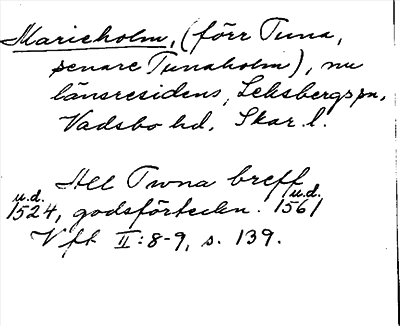 Marieholm, (förr Tuna,
senare Tunaholm), nu
länsresidens, Leksbergs sn,
Vadsbo hd, Skar. l.
All Twna breff
u.d. 1524, godsförteckn. u.d. 1561
Vft II:8-9, s. 139.